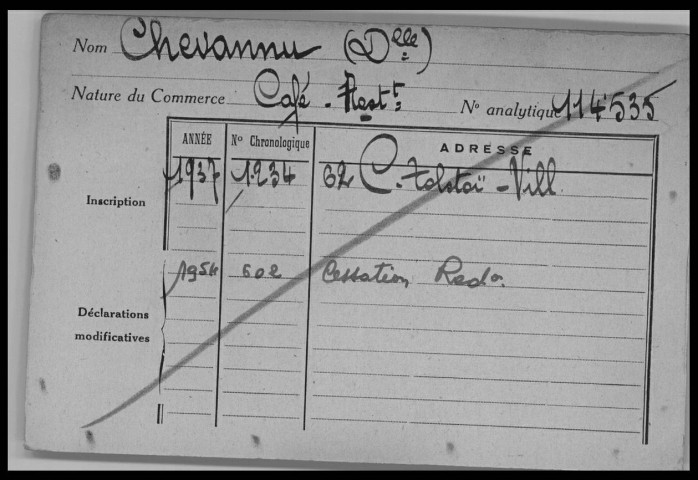 Nom Chevannu (Dlle)
Nature du Commerce Café - Restt: Nº analytique 114535
ANNÉE Nº Chronologique ADRESSE
Inscription 1937 1234 62 C. Tolstoï - Vill
1954 602 Cessation Rado.
Déclarations
modificatives